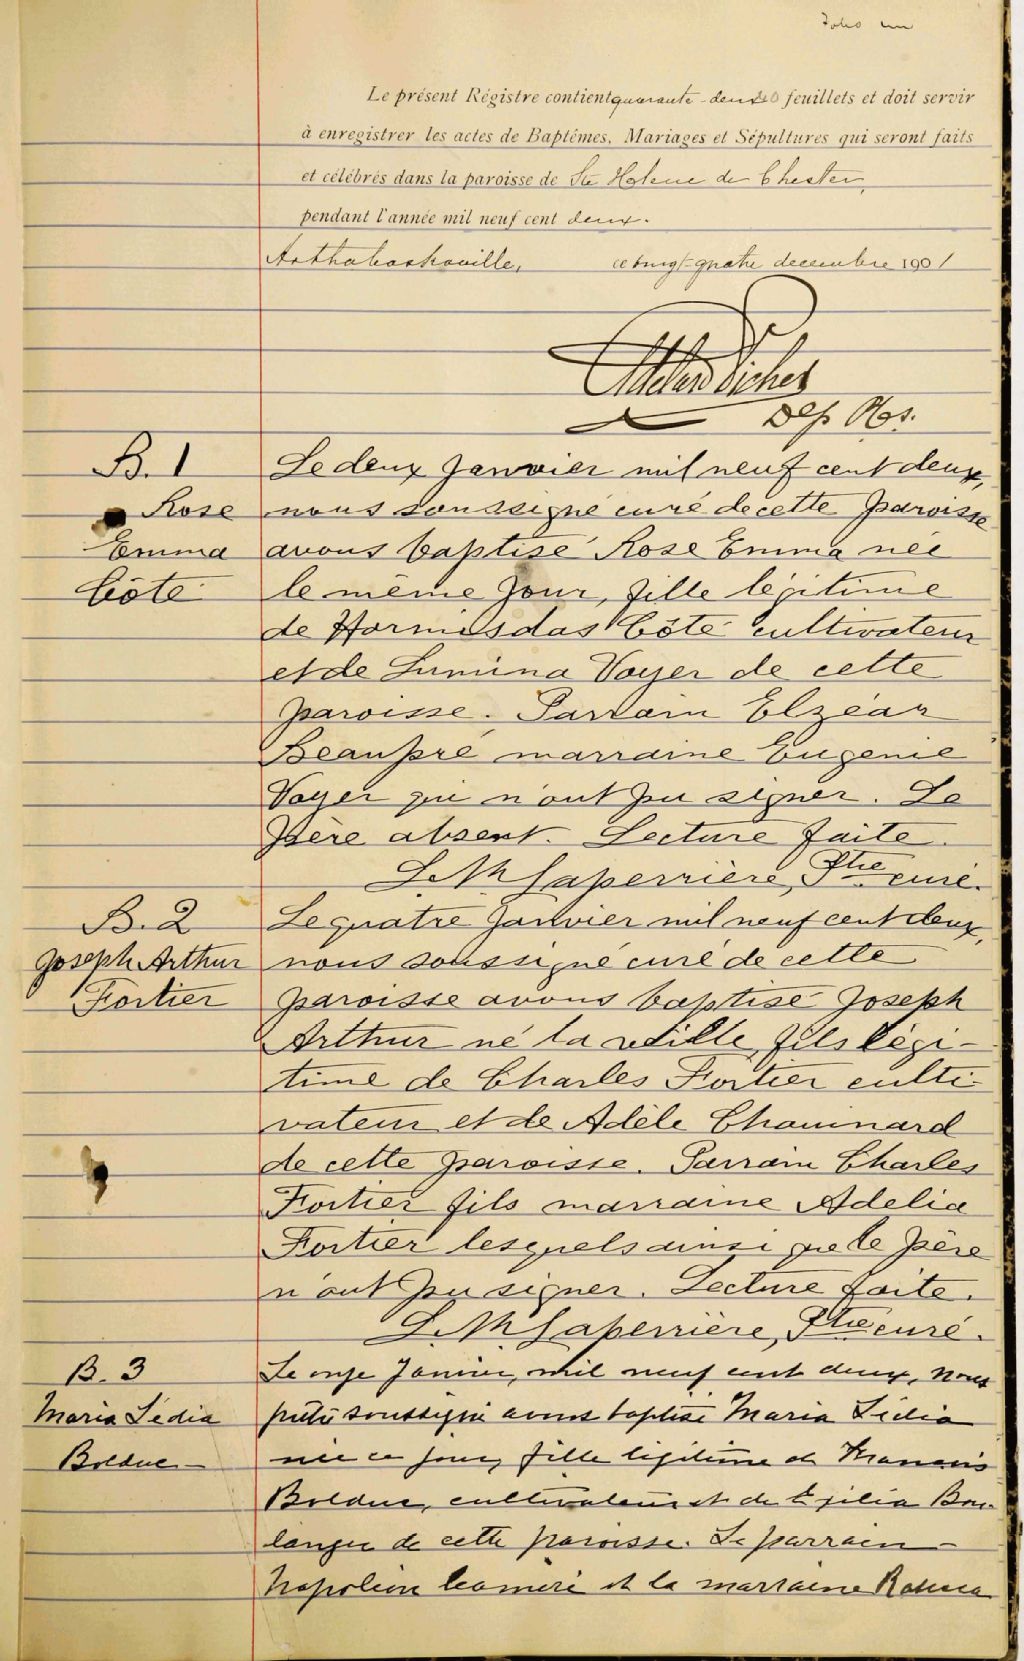 Folio un
Le présent Régistre contient quarante-deux feuillets et doit servir
à enregistrer les actes de Baptêmes, Mariages et Sépultures qui seront faits
et célébrés dans la paroisse de Ste Helene de Chester,
pendant l'année mil neuf cent deux.
Arthabaskaville, ce vingt-quatre decembre 1901
Adelard Picher
Dep
B. 1
Le deux janvier mil neuf cent deux,
Rose
nous soussigné curé de cette paroisse
Emma
avons baptisé Rose Emma née
Côté
le même jour, fille légitime
de Hormisdas Côté cultivateur
et de Lumina Voyer de cette
paroisse. Parrain Elzéar
Beaupré marraine Eugenie
Voyer qui n'ont pu signer. Le
père absent. Lecture faite.
L. M Laperrière, Ptre curé.
B. 2
Le quatre janvier mil neuf cent deux,
Joseph Arthur
nous soussigné curé de cette
Fortier
paroisse avons baptisé Joseph
Arthur né la veille, fils légi-
time de Charles Fortier culti-
vateur et de Adèle Chouinard
de cette paroisse. Parrain Charles
Fortier fils marraine Adelia
Fortier lesquels ainsi que le père
n'ont pu signer. Lecture faite.
L. M Laperrière, Ptre curé.
B. 3
Le onze Janvier, mil neuf cent deux, nous
Maria Lédia
prêtre soussigné avons baptisé Maria Lédia
Bolduc
née ce jour, fille légitime de Francois
Bolduc, cultivateur et de Exilia Bou-
langer de cette paroisse. Le parrain
Napoléon et la marraine